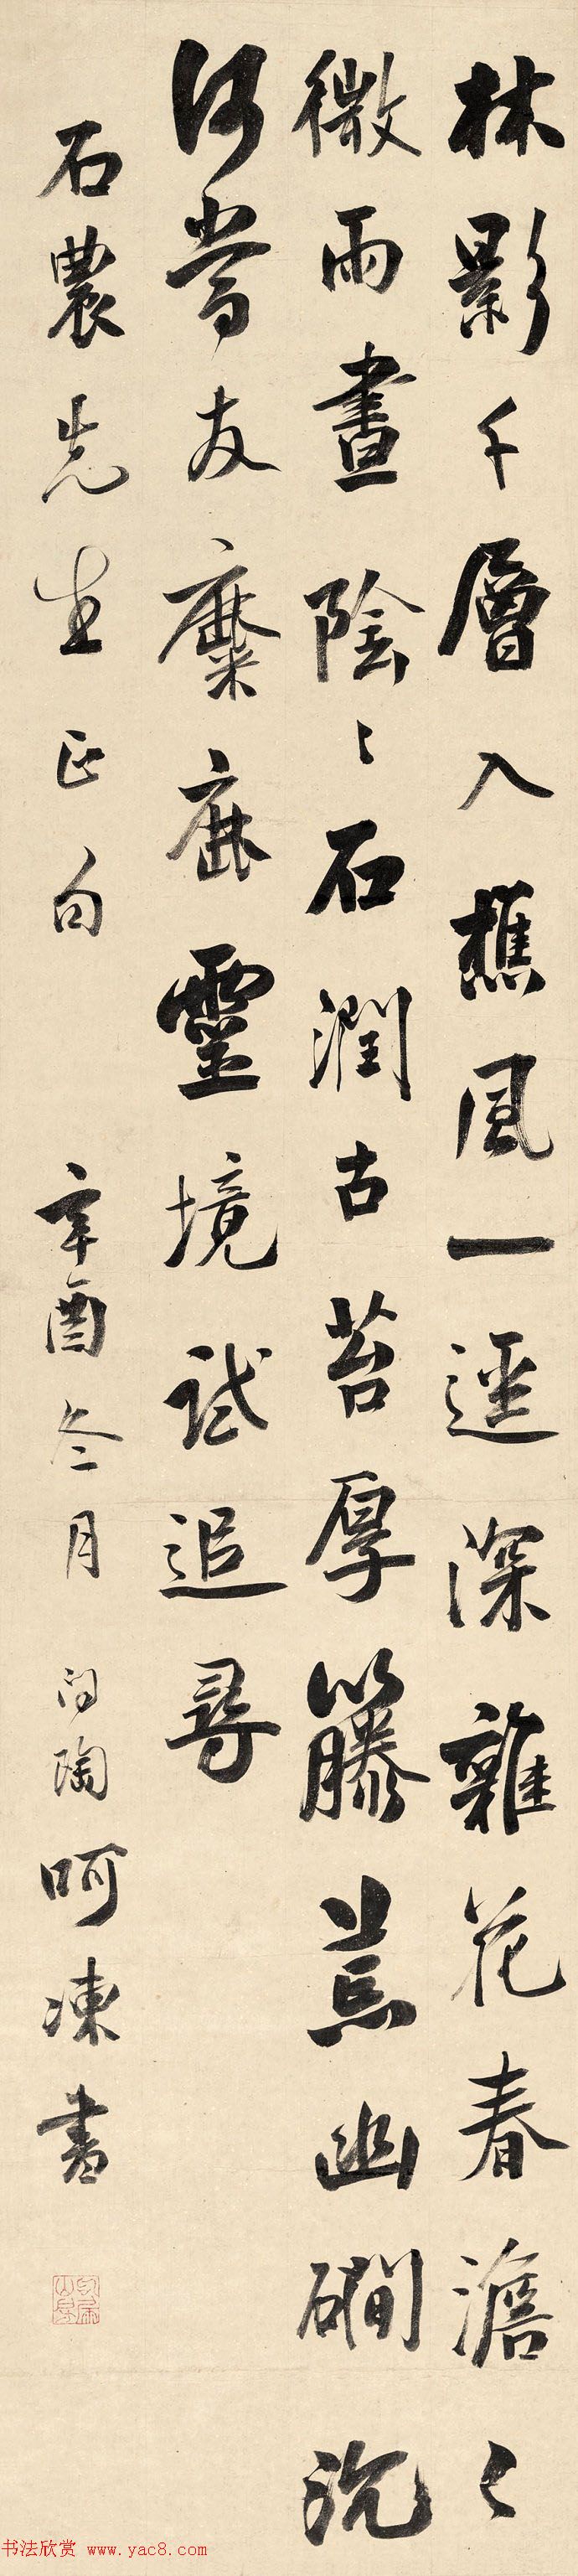 林影千層入樵風一逕深雜花春澹〻
微雨晝陰〻石潤古苔厚籐荒幽磵沉
何當友麋鹿靈境試追尋
石農先生正句 辛酉冬月 問陶呵凍書
书法欣赏 www.yac8.com